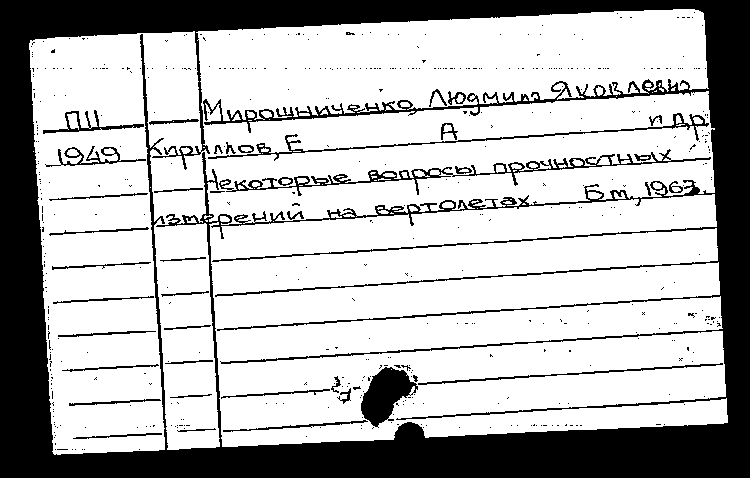 Мирошниченко, Людмила Яковлевна
П11
1949 Кириллов, Е А и др
Некоторые вопросы прочностных
измерений на вертолетах. Б.м., 1963.